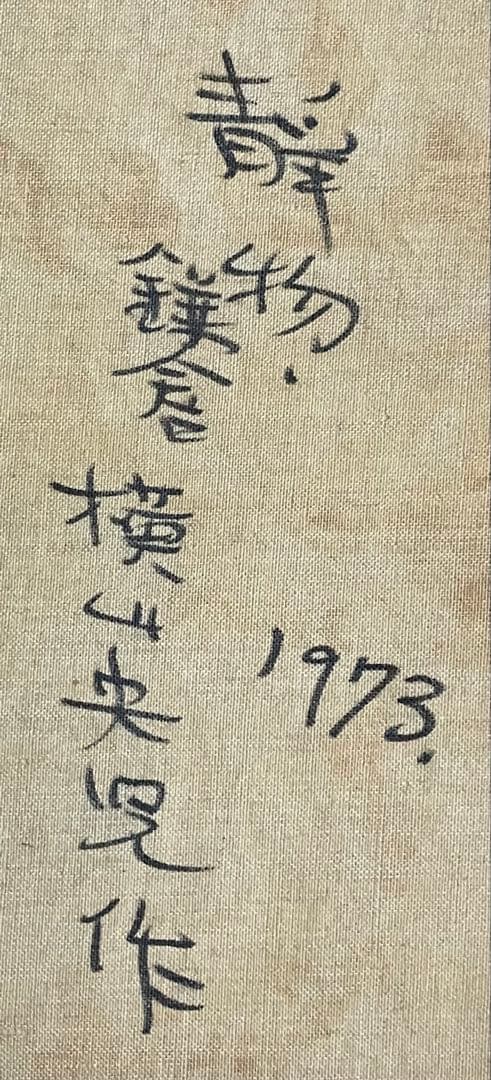 靜物.
1973.
鎌倉
横山央児作